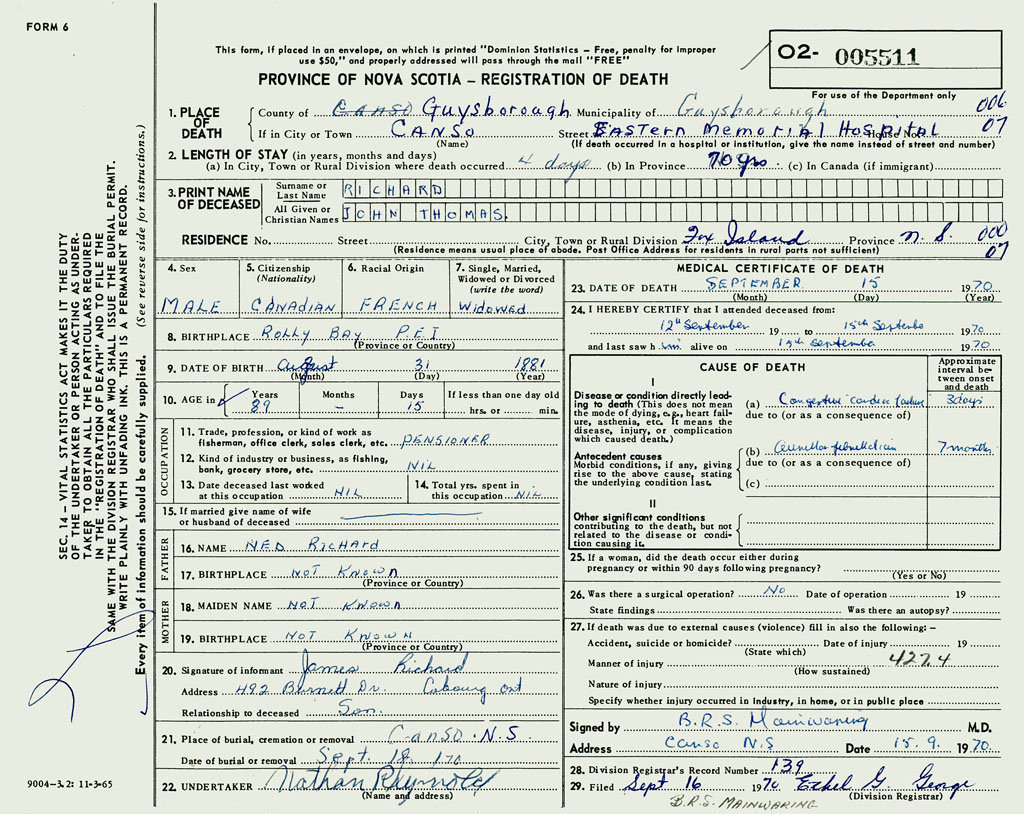 FORM 6
This form, if placed in an envelope, on which is printed "Dominion Statistics – Free, penalty for improper
use $50," and properly addressed will pass through the mail "FREE"
PROVINCE OF NOVA SCOTIA – REGISTRATION OF DEATH
O2- 005511
For use of the Department only
006
07
1. PLACE OF DEATH
County of Canso Guysborough Municipality of Guysborough
If in City or Town CANSO Street EASTERN MEMORIAL HOSPITAL House No.
(Name) (If death occurred in a hospital or institution, give the name instead of street and number)
2. LENGTH OF STAY (in years, months and days)
(a) In City, Town or Rural Division where death occurred 4 days (b) In Province 70 yrs (c) In Canada (if immigrant)
3. PRINT NAME OF DECEASED
Surname or Last Name RICHARD
All Given or Christian Names JOHN THOMAS
RESIDENCE No. Street City, Town or Rural Division Fox Island Province N.S. 000
07
(Residence means usual place of abode. Post Office Address for residents in rural parts not sufficient)
4. Sex MALE
5. Citizenship (Nationality) CANADIAN
6. Racial Origin FRENCH
7. Single, Married, Widowed or Divorced (write the word) WIDOWED
8. BIRTHPLACE ROLLY BAY P.E.I
(Province or Country)
9. DATE OF BIRTH August 31 1881
(Month) (Day) (Year)
10. AGE in Years 89 Months – Days 15 If less than one day old hrs. or min.
OCCUPATION
11. Trade, profession, or kind of work as
fisherman, office clerk, sales clerk, etc. PENSIONER
12. Kind of industry or business, as fishing,
bank, grocery store, etc. NIL
13. Date deceased last worked
at this occupation NIL
14. Total yrs. spent in
this occupation NIL
15. If married give name of wife
or husband of deceased
FATHER
16. NAME NED RICHARD
17. BIRTHPLACE NOT KNOWN
(Province or Country)
MOTHER
18. MAIDEN NAME NOT KNOWN
19. BIRTHPLACE NOT KNOWN
(Province or Country)
20. Signature of informant James Richard
Address 492 Burnett Dr. Cobourg Ont
Relationship to deceased Son.
21. Place of burial, cremation or removal CANSO. N.S.
Date of burial or removal Sept. 18 170
22. UNDERTAKER Nathan Reynolds
(Name and address)
MEDICAL CERTIFICATE OF DEATH
23. DATE OF DEATH SEPTEMBER 15 1970
(Month) (Day) (Year)
24. I HEREBY CERTIFY that I attended deceased from:
12th September 19 to 15th Septembe 1970
and last saw him alive on 15th September 1970
CAUSE OF DEATH
Approximate interval between onset and death
I
Disease or condition directly leading to death (This does not mean the mode of dying, e.g., heart failure, asthenia, etc. It means the disease, injury, or complication which caused death.)
(a) Congestive cardiac failure 3 days
due to (or as a consequence of)
Antecedent causes
Morbid conditions, if any, giving rise to the above cause, stating the underlying condition last.
(b) Auricular fibrillation 7 months
due to (or as a consequence of)
(c)
II
Other significant conditions
contributing to the death, but not related to the disease or condition causing it.
25. If a woman, did the death occur either during
pregnancy or within 90 days following pregnancy?
(Yes or No)
26. Was there a surgical operation? No Date of operation 19
State findings Was there an autopsy?
27. If death was due to external causes (violence) fill in also the following: –
Accident, suicide or homicide? Date of injury 19
(State which)
Manner of injury 427.4
(How sustained)
Nature of injury
Specify whether injury occurred in industry, in home, or in public place
Signed by B.R.S. Mainwaring M.D.
Address Canso N.S Date 15.9. 1970.
28. Division Registrar's Record Number 139
29. Filed Sept 16 1970 Ethel G. George
(Division Registrar)
B.R.S. MAINWARING
SEC. 14 – VITAL STATISTICS ACT MAKES IT THE DUTY
OF THE UNDERTAKER OR PERSON ACTING AS UNDER-
TAKER TO OBTAIN ALL THE PARTICULARS REQUIRED
IN THE "REGISTRATION OF DEATH" AND TO FILE THE
SAME WITH THE DIVISION REGISTRAR WHO SHALL ISSUE THE BURIAL PERMIT.
WRITE PLAINLY WITH UNFADING INK. THIS IS A PERMANENT RECORD.
Every item of information should be carefully supplied. (See reverse side for instructions.)
9004–3.2: 11-3-65